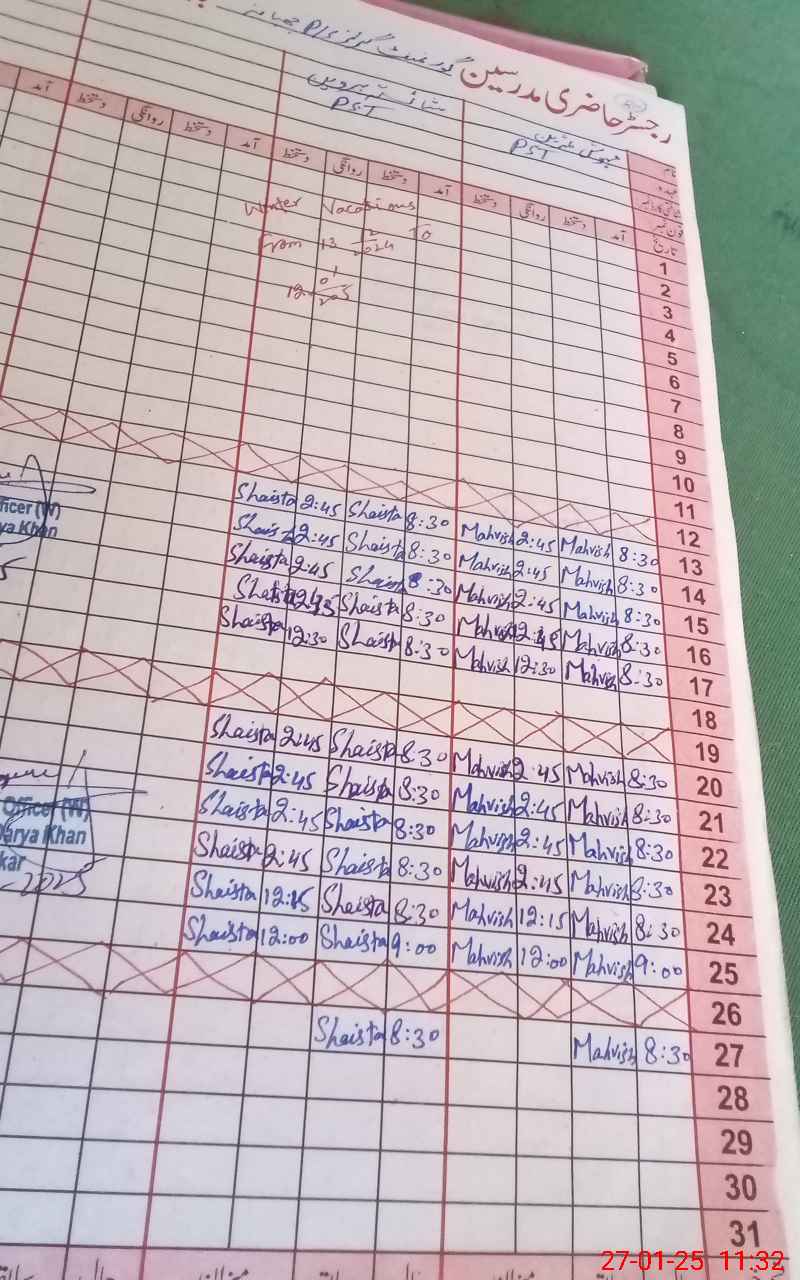 رجسٹر حاضری مدرسین گورنمنٹ گرلز P/S
شائستہ پروین
PST
PST
نام
عہدہ
تاریخ
آمد دستخط روانگی دستخط آمد دستخط روانگی دستخط آمد دستخط روانگی دستخط آمد
Winter Vacations
From 13 12 2024 To
12 01
1
2
3
4
5
6
7
8
9
10
11
12
Shaista 2:45 Shaista 8:30 Mahvish 2:45 Mahvish 8:30 13
Shaista 2:45 Shaista 8:30 Mahvish 2:45 Mahvish 8:30 14
Shaista 2:45 Shaista 8:30 Mahvish 2:45 Mahvish 8:30 15
Shaista 2:45 Shaista 8:30 Mahvish 2:45 Mahvish 8:30 16
Shaista 12:30 Shaista 8:30 Mahvish 12:30 Mahvish 8:30 17
18
19
Shaista 2:45 Shaista 8:30 Mahvish 2:45 Mahvish 8:30 20
Shaista 2:45 Shaista 8:30 Mahvish 2:45 Mahvish 8:30 21
Shaista 2:45 Shaista 8:30 Mahvish 2:45 Mahvish 8:30 22
Shaista 2:45 Shaista 8:30 Mahvish 2:45 Mahvish 8:30 23
Shaista 12:15 Shaista 8:30 Mahvish 12:15 Mahvish 8:30 24
Shaista 12:00 Shaista 9:00 Mahvish 12:00 Mahvish 9:00 25
26
Shaista 8:30 Mahvish 8:30 27
28
29
30
31
ficer (W)
ya Khan
Officer (W)
Darya Khan
kar
-2025
27-01-25 11:32